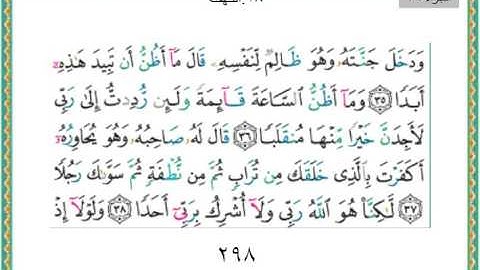 وَدَخَلَ جَنَّتَهُۥ وَهُوَ ظَالِمٌ لِّنَفْسِهِۦ قَالَ مَآ أَظُنُّ أَن تَبِيدَ هَٰذِهِۦٓ
أَبَدًا ٣٥ وَمَآ أَظُنُّ ٱلسَّاعَةَ قَآئِمَةً وَلَئِن رُّدِدتُّ إِلَىٰ رَبِّى
لَأَجِدَنَّ خَيْرًا مِّنْهَا مُنقَلَبًا ٣٦ قَالَ لَهُۥ صَاحِبُهُۥ وَهُوَ يُحَاوِرُهُۥٓ
أَكَفَرْتَ بِٱلَّذِى خَلَقَكَ مِن تُرَابٍ ثُمَّ مِن نُّطْفَةٍ ثُمَّ سَوَّىٰكَ رَجُلًا
٣٧ لَّٰكِنَّا۠ هُوَ ٱللَّهُ رَبِّى وَلَآ أُشْرِكُ بِرَبِّىٓ أَحَدًا ٣٨ وَلَوْلَآ إِذْ
٢٩٨